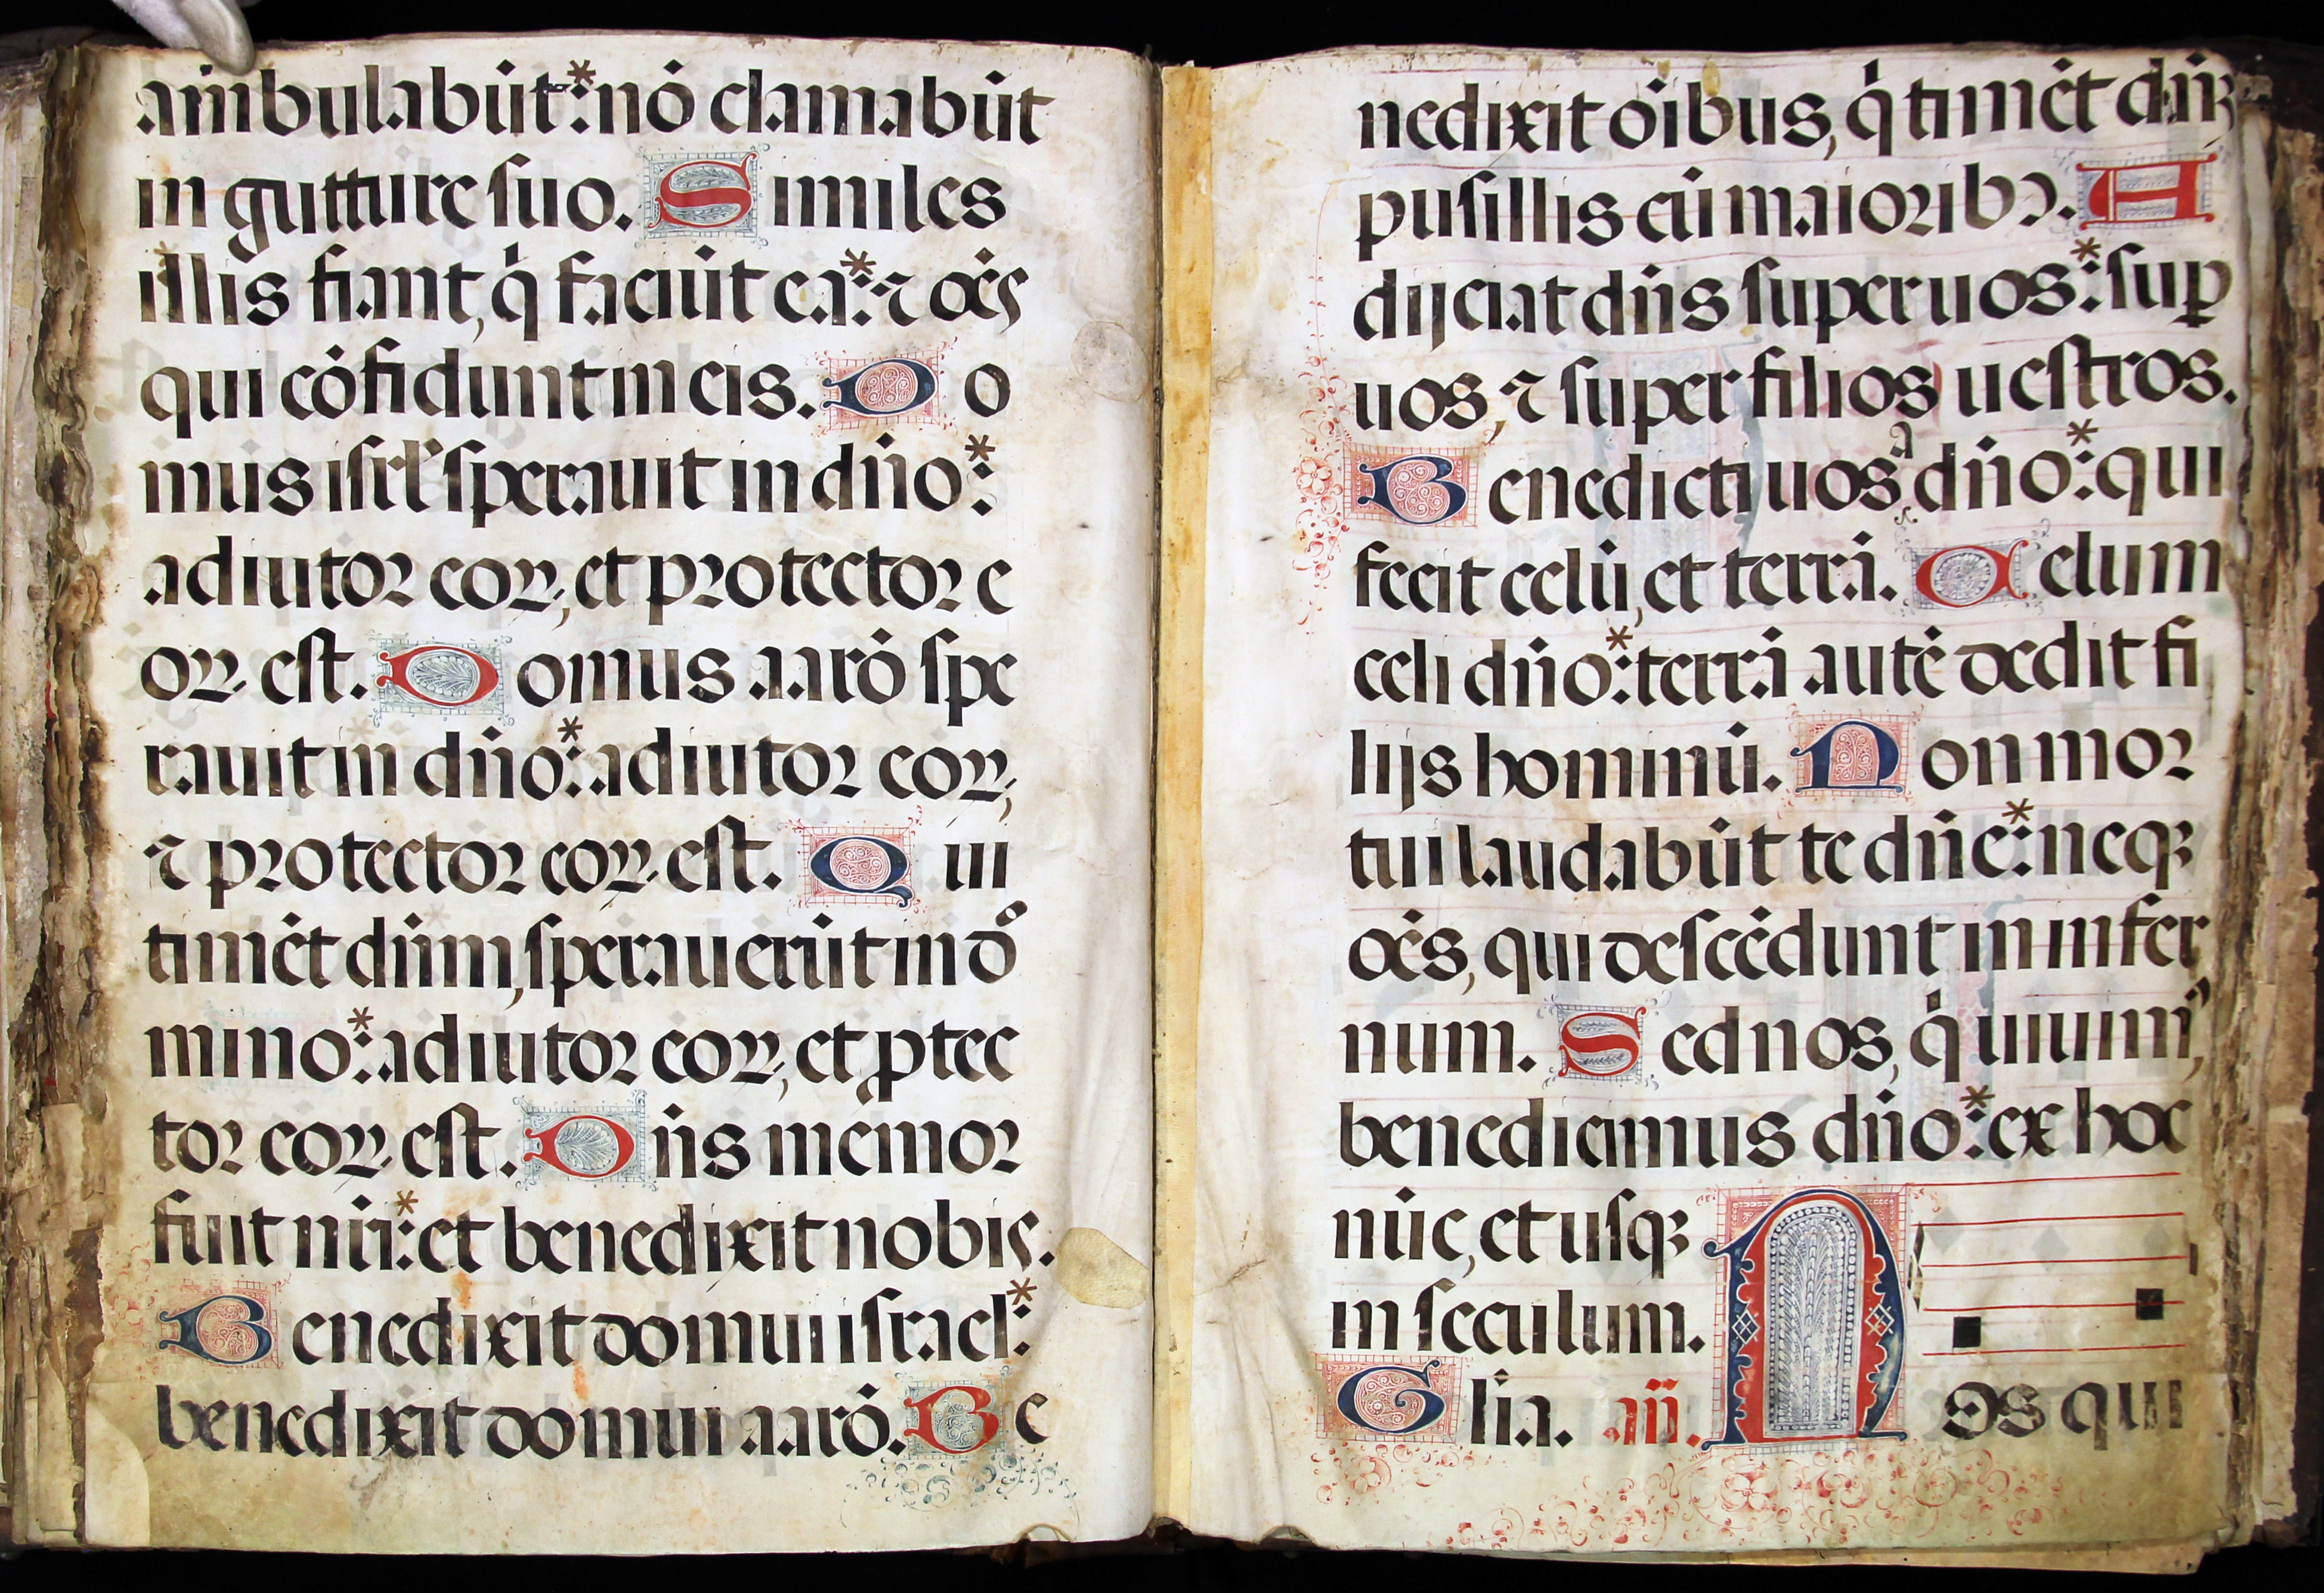 ambulabūt:* nō clamabūt
in gutture ſuo. Similes
illis fiant, q̇ faciūt ea:* ⁊ oēs
qui cōfidunt in eis. Do
mus iſrl' ſperauit in dn̄o:*
adiutor eoꝝ, et protector e
oꝝ eſt. Domus aarō ſpe
rauit in dn̄o:* adiutor eoꝝ,
⁊ protector eoꝝ eſt. Qui
timēt dn̄m, ſperauerūt in do
mino:* adiutor eoꝝ, et ꝓtec
tor eoꝝ eſt. Dn̄s memor
fuit nr̄i:* et benedixit nobis.
Benedixit domui iſrael:*
benedixit domui aarō. Be
nedixit oībus, q̇ timēt dn̄ꝫ
puſillis cū maioribꝰ. A
dijciat dn̄s ſuper uos:* ſuꝑ
uos, ⁊ ſuper filios ueſtros.
Benedicti uos a dn̄o:* qui
fecit celū, et terrā. Celum
celi dn̄o:* terrā autē dedit fi
lijs hominū. Non mor
tui laudabūt te dn̄e:* neqꝫ
oēs, qui deſcēdunt in infer
num. Sed nos, q̇ uiuimꝰ,
benedicimus dn̄o:* ex hoc
nūc, et uſqꝫ
in ſeculum.
Glīa. añ. Nos qui